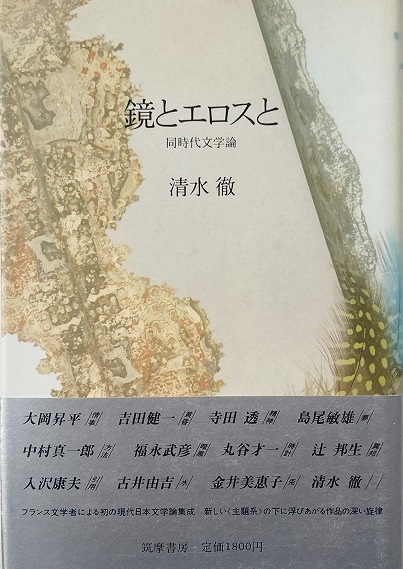 鏡とエロスと
同時代文学論
清水 徹
大岡昇平 吉田健一 寺田 透 島尾敏雄 夢
中村真一郎 方法 福永武彦 丸谷才一 時計 辻 邦生
入沢康夫 引用 古井由吉 水 金井美恵子 清水 徹
フランス文学者による初の現代日本文学論集成 新しい〈主題系〉の下に浮びあがる作品の深い旋律
筑摩書房 定価1800円